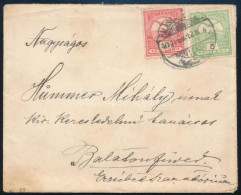 Nagyságos
Hümmer Mihály úrnak
kir. Kereskedelmi tanácsos
Balatonfüred
Erzsébet szanatórium